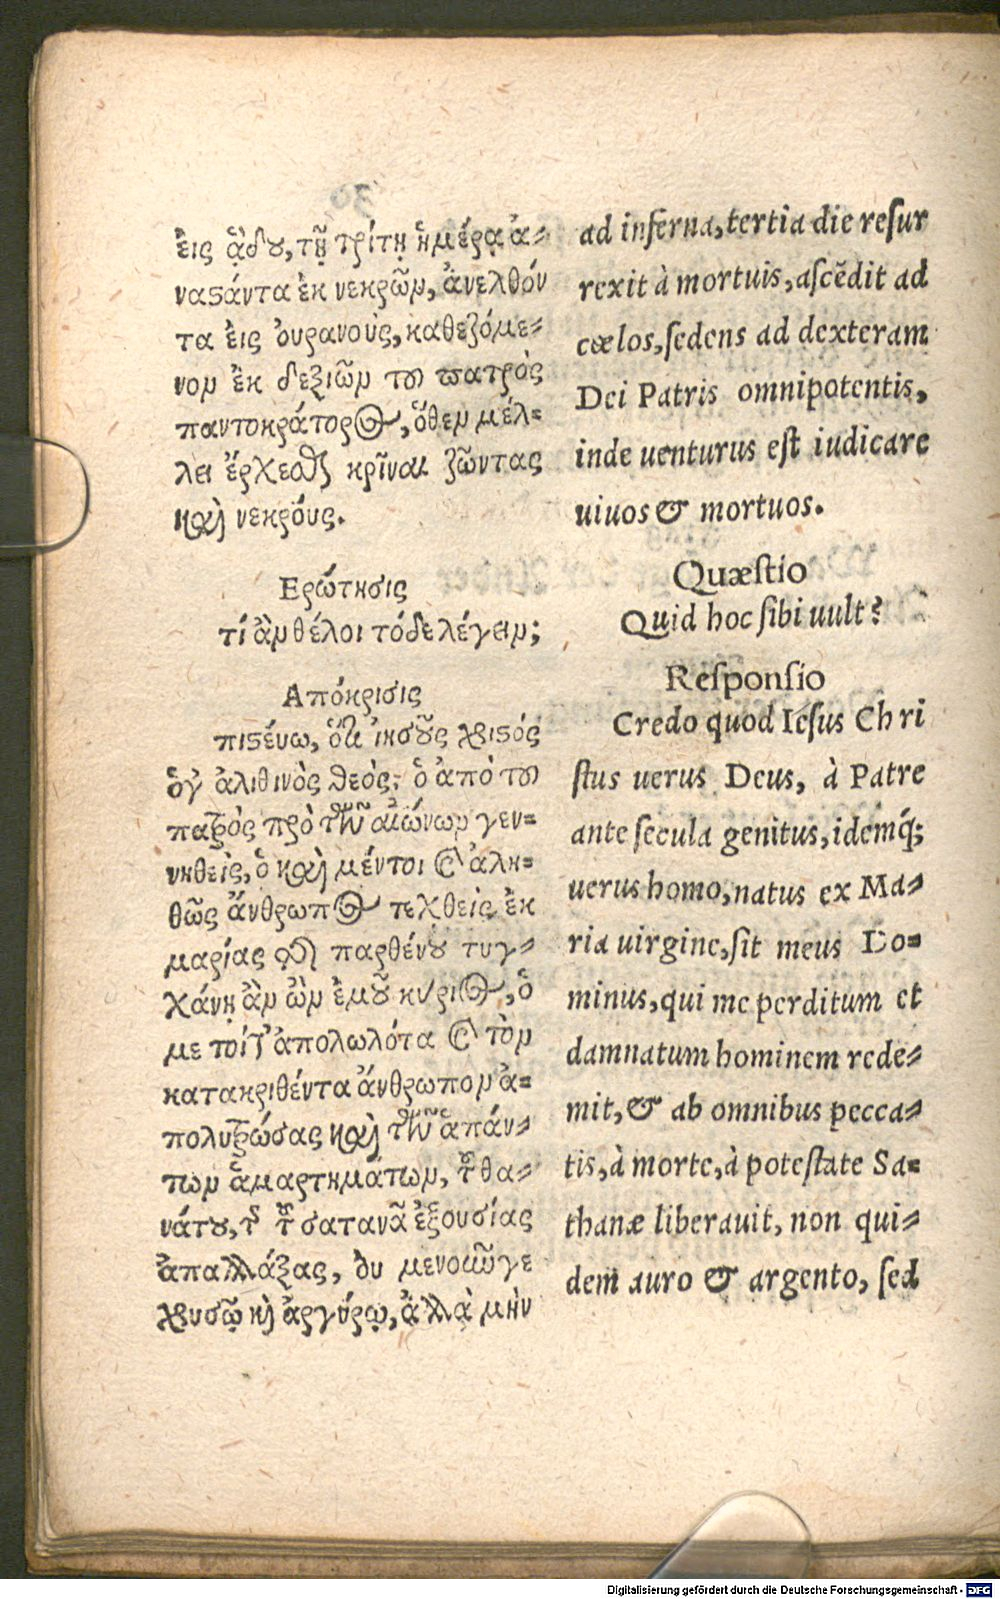 εἰς ᾅδου, τῇ τρίτῃ ἡμέρᾳ ἀ-
ναϛάντα ἐκ νεκρῶν, ἀνελθόν
τα εἰς ὀυρανοὺς, καθεζόμε-
νον ἐκ δεξιῶν τοῦ πατρὸς
παντοκράτορος, ὅθεν μέλ-
λει ἔρχεσθαι κρῖναι ζῶντας
καὶ νεκρόυς.
Ερώτησις
τί ἂν θέλοι τόδε λέγειν;
Απόκρισις
πιϛέυω, ὅτι ἰησοῦς χριϛός
ὁγ̓ ἀλιθινὸς θεὸς, ὁ ἀπὸ τοῦ
πατρὸς πρὸ τῶν αἰώνων γεν-
νηθεὶς, ὁ καὶ μέντοι καὶ ἀλη-
θῶς ἄνθρωπος τεχθεὶς ἐκ
μαρίας τῆς παρθένου τυγ-
χάνῃ ἂν ὢν ἐμοῦ κύριος, ὁ
με τοίγ̓ ἀπολωλότα καὶ τὸν
κατακριθέντα ἄνθρωπον ἀ-
πολυτρώσας καὶ τῶν ἁπάν-
των ἁμαρτημάτων, τοῦ θα-
νάτου, τῆς τοῦ σατανᾶ ἐξουσίας
ἀπαλλάξας, ὀυ μενοιῶγε
χρυσῷ κὶ ἀργύρῳ, ἀλλὰ μὴν
ad inferna, tertia die resur
rexit à mortuis, ascẽdit ad
cœlos, sedens ad dexteram
Dei Patris omnipotentis,
inde uenturus est iudicare
uiuos & mortuos.
Quæstio
Quid hoc sibi uult?
Responsio
Credo quod Iesus Chri
stus uerus Deus, à Patre
ante secula genitus, idemq́;
uerus homo, natus ex Ma-
ria uirgine, sit meus Do-
minus, qui me perditum et
damnatum hominem rede-
mit, & ab omnibus pecca-
tis, à morte, à potestate Sa-
thanæ liberauit, non qui-
dem auro & argento, sed
Digitalisierung gefördert durch die Deutsche Forschungsgemeinschaft - DFG